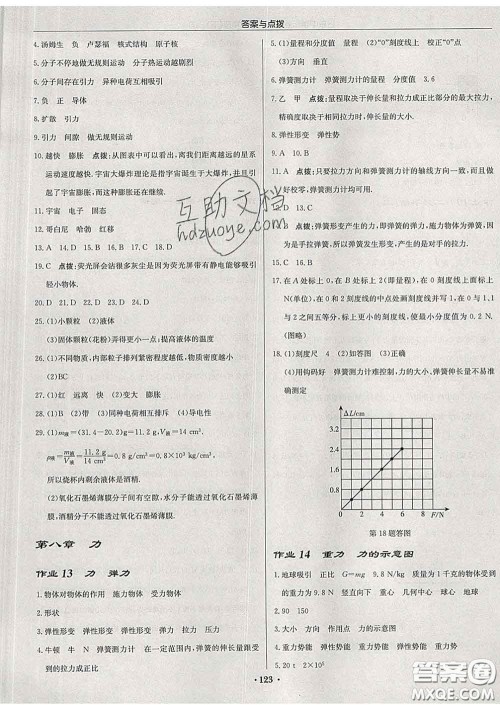 答案与点拨
4. 汤姆生 负 卢瑟福 核式结构 原子核
5. 分子不停地做无规则运动 分子运动越剧烈
6. 分子间存在引力 异种电荷互相吸引
7. 负 正 导体
8. 扩散 引力
9. 引力 间隙 做无规则运动
10. 越快 膨胀 点拨:从图表中可以看出,离我们距离越远的星系运动速度越快.宇宙大爆炸理论指宇宙诞生于大爆炸,并且引起了宇宙膨胀,而这种膨胀还在继续.
11. 宇宙 电子 固态
12. 哥白尼 哈勃 红移
13. A 14. D 15. B 16. C 17. A 18. B
19. C 点拨:荧光屏会沾很多灰尘是因为荧光屏带有静电能够吸引轻小物体.
20. D 21. D 22. C 23. D 24. D
25. (1)小颗粒 (2)液体
(3)固体颗粒(花粉)弄得更小一些 适当提高液体的温度
26. (1)不同物质,内部分子间紧密程度可能不同
(2)BC
27. (1)红 远离 快 (2)变大 膨胀
28. (1)B (2)带 (3)同种电荷相互排斥 (4)导电性
29. (1)m液=(31.4-20.2)g=11.2 g V液=14 cm³,
ρ液=m液/V液=11.2 g/14 cm³=0.8 g/cm³=0.8×10³ kg/cm³
所以烧杯内剩余液体是酒精.
(2)氧化石墨烯薄膜分子间有空隙,水分子能透过氧化石墨烯薄膜,酒精分子不能透过氧化石墨烯薄膜.
第八章 力
作业 13 力 弹力
1. 物体对物体的作用 施力物体 受力物体
2. 形状
3. 弹性形变 弹性形变 弹性形变 弹力 拉力 压力
4. 牛顿 牛 N 弹簧测力计 在一定范围内,弹簧的伸长与受到的拉力成正比
5. (1)量程和分度值 量程 (2)“0”刻度线上 校正“0”点
(3)方向 垂直
6. 弹簧测力计 弹簧测力计的量程 分度值 3.6
7. 乙 甲 点拨:量程取决于伸长量和拉力成正比的最大拉力,精度取决于伸长相同长度时拉力的大小.
8. 弹性形变 弹性势
9. A 10. B
11. C 点拨:只要拉力方向和弹簧测力计的轴线方向一致,就可以较准确地测量出拉力的大小,所以,向各个方向拉弹簧,弹簧测力计均可使用.
12. D 13. D 14. B 15. A
16. C 点拨:弹簧形变产生的力,即弹簧的弹力,施力物体为弹簧,因为力的作用是相互的,所以手由于对弹簧施加了力,同时也受到了弹簧形变产生的弹力.
17. 在A处标上0,在B处标上2(即量程),在0刻度线上面标上N(单位),在0和2刻度线的中点处画刻度线并写上1,0与1,1与2之间再五等分,标上更小的刻度线,使它的最小刻度是0.2 N.(图略)
18. (1)刻度尺 4 (2)如答图 (3)正确
(4)用钩码好 弹簧测力计难控制,力的大小、弹簧伸长量不易准确测定
ΔL/cm
3.2
2.4
1.6
0.8
0 2 4 6 8 F/N
第18题答图
作业 14 重力 力的示意图
1. 地球吸引 正比 G=mg 9.8 N/kg 质量为1千克的物体受到的重力为9.8 N 竖直向下 重心 几何中心 球心 重心
2. 90 150
3. 大小 方向 作用点 力的示意图
5. 20 t 2×10⁵
· 123 ·
互助文档
hdzuoye.com
答案圈
MXQE.COM